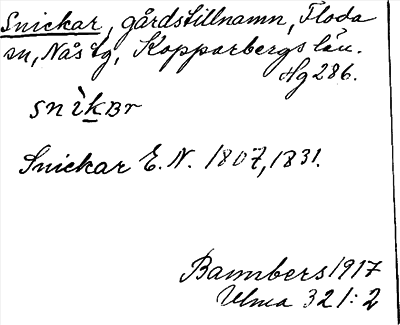 Snickar, gårdstillnamn, Floda
sn, Nås tg, Kopparbergs län.
Hg 286.
snìkBr
Snickar E. N. 1807, 1831.
Bannbers 1917
Ulma 321:2